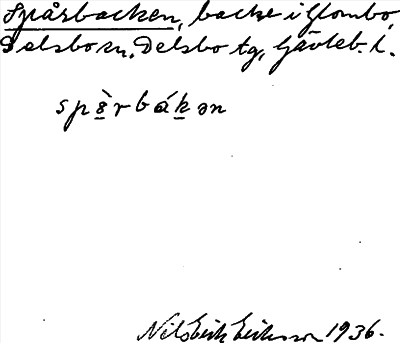 Spårsbacken, backe i Glombo,
Delsbo sn, Delsbo tg, Gävleb. l.
spè̱rbáḵən
Nils Erik Eriksson 1936.